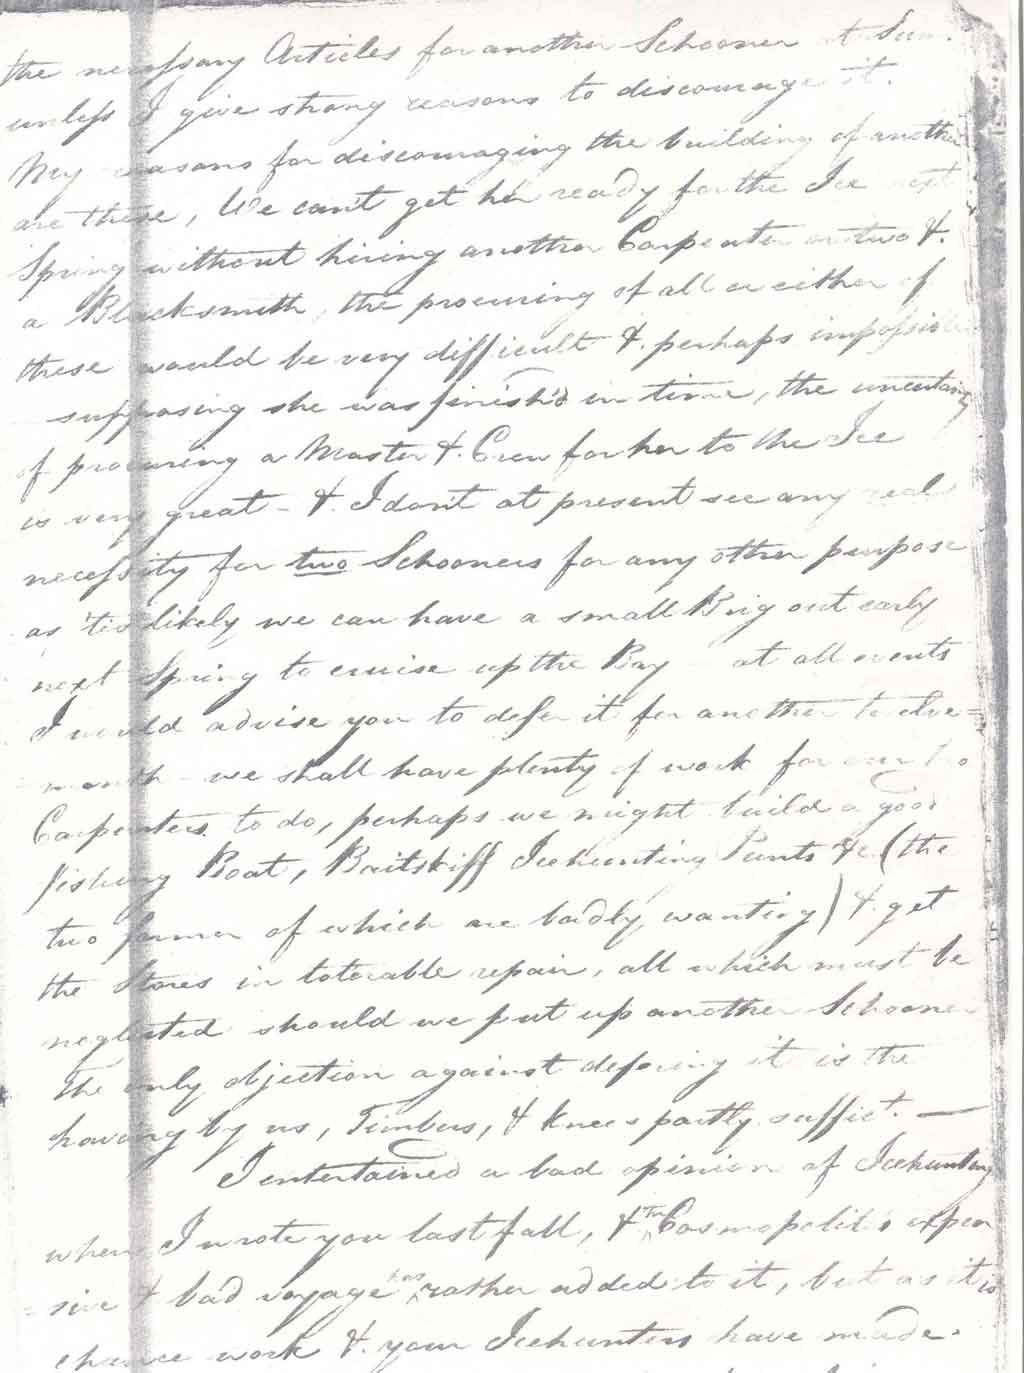 the necessary Articles for another Schooner at
unless I give strong reasons to discourage it.
My reasons for discouraging the building of another
are these, We can't get her ready for the Ice next
Spring without hiring another Carpenter or two &.
a Blacksmith, the procuring of all or either of
these would be very difficult &. perhaps impossible
supposing she was finish'd in time, the uncertainty
of procuring a Master &. Crew for her to the Ice
is very great - &. I don't at present see any real
necessity for two Schooners for any other purpose
as 'tis likely we can have a small Brig out early
next Spring to cruise up the Bay - at all events
I would advise you to defer it for another twelve=
month - we shall have plenty of work for our two
Carpenters to do, perhaps we might build a good
fishing Boat, Baitskiff Icehunting Punts &c (the
two former of which are badly wanting) &. get
the Stores in tolerable repair, all which must be
neglected should we put up another Schooner
The only objection against defering it is the
having by us, Timbers, & Knees partly suffict. —
I entertained a bad opinion of Icehunting
when I wrote you last fall, & the Cosmopolite's expen
=sive & bad voyage has rather added to it, but as it is
chance work &. your Icehunters have made